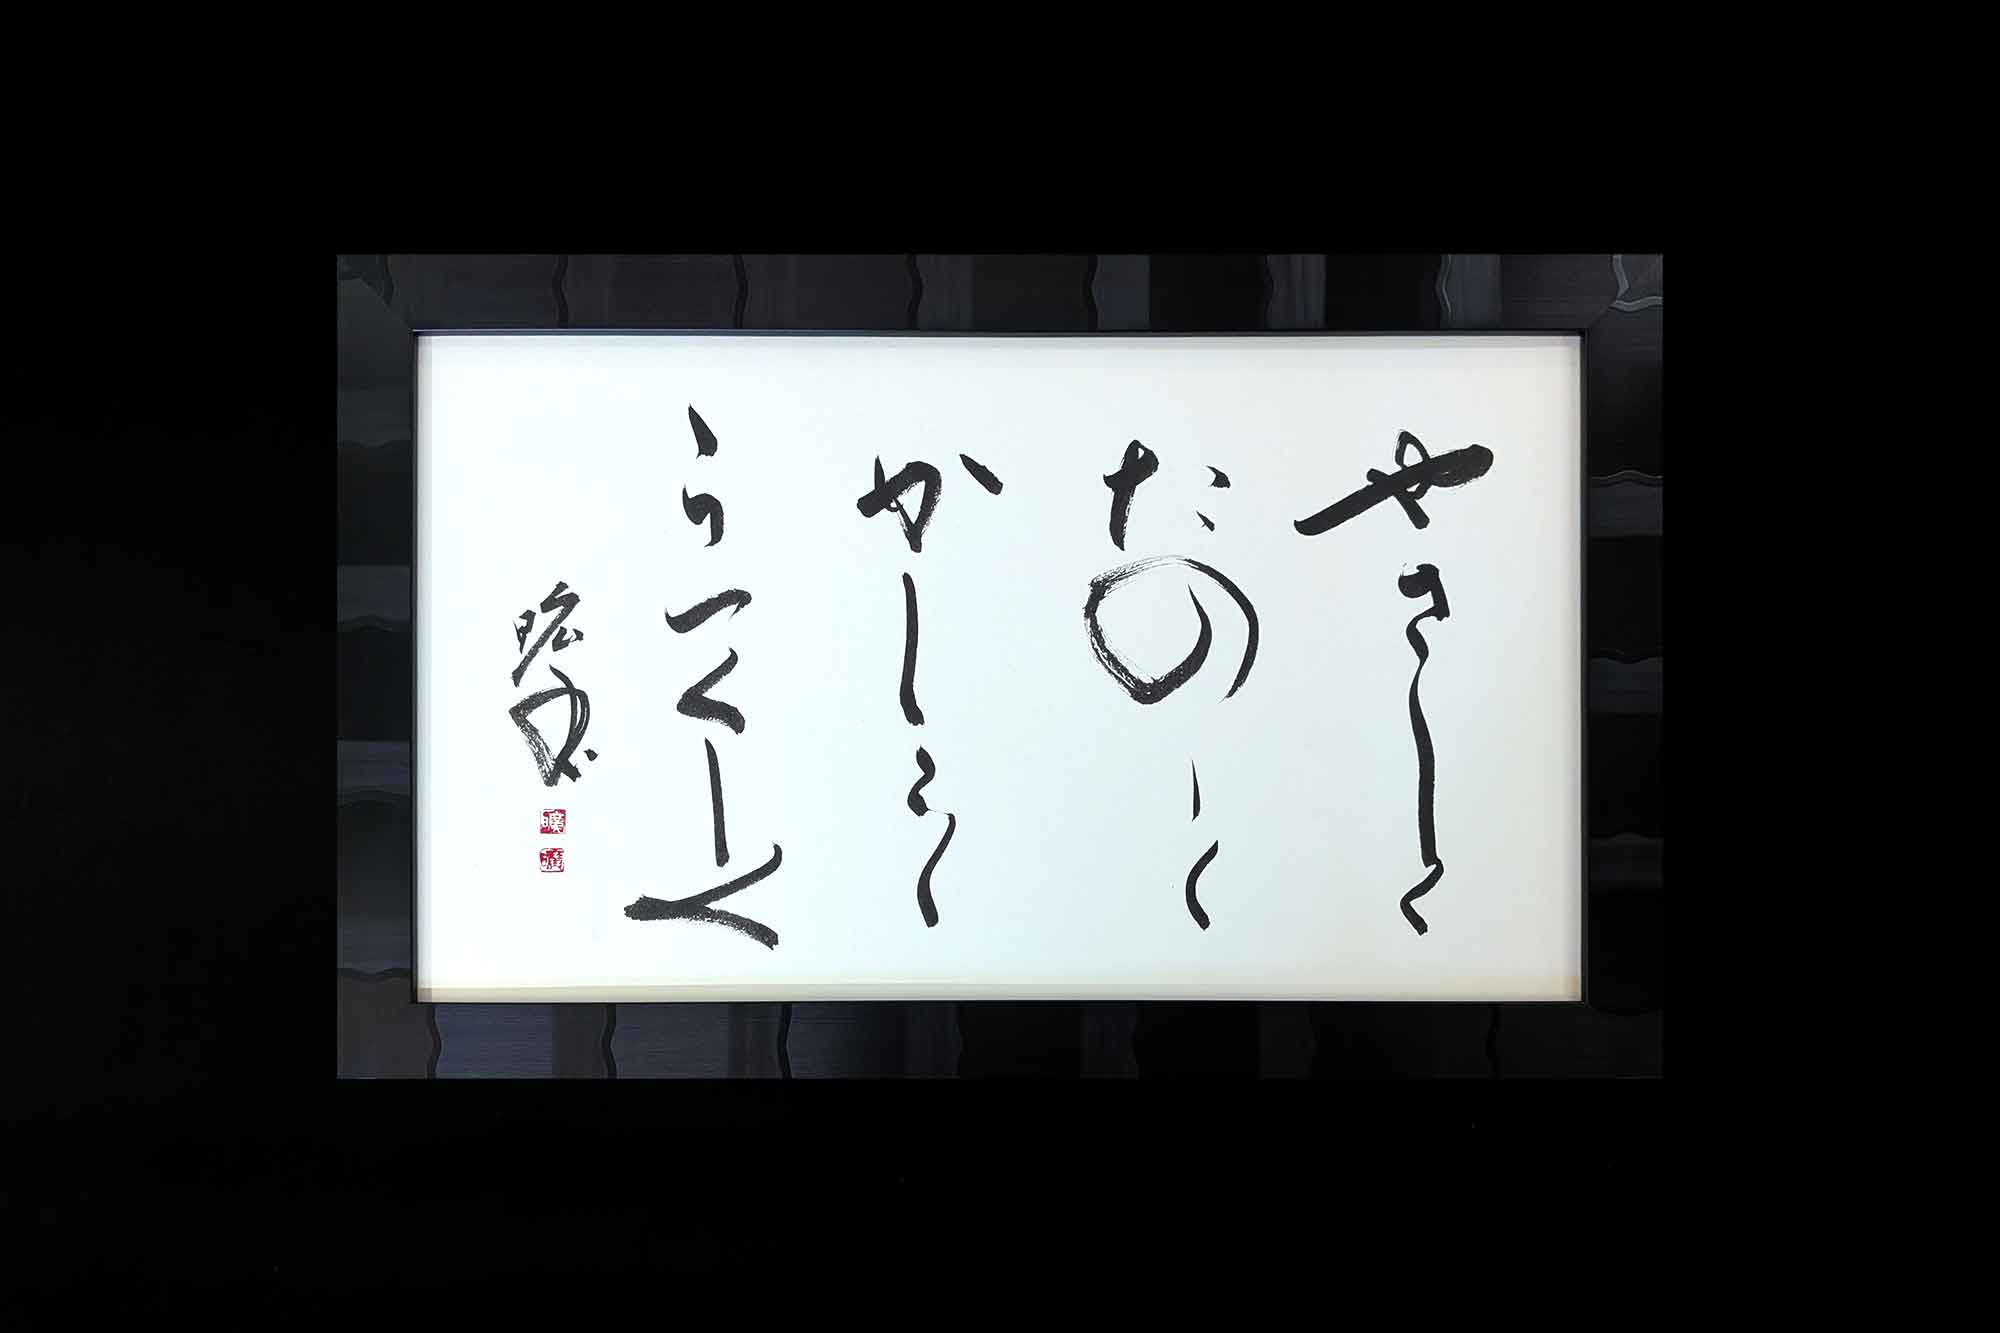 やさしく
たのしく
かしこく
うつくしく